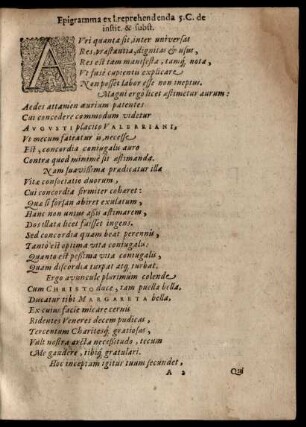 Epigramma ex l. reprehendenda 5. C. de
instit. & subst.
AVri quanta sit, inter universas
Res, præstantia, dignitas & usus,
Res est tam manifesta, tamq́; nota,
Vt fusè cupientis explicare
Non posset labor esse non ineptus.
Magni ergò licet æstimetur aurum:
Aedes attamen aurium patentes
Cui concedere commodum videtur
AVGVSTI placito VALERIANI,
Vt mecum fateatur is, necesse
Est, concordia coniugalis auro
Contra quod minimè sit æstimanda.
Nam suavissima prædicatur illa
Vitæ consociatio duorum,
Cui concordia firmiter cohæret:
Qua si forsan abiret exulatum,
Hanc non unius assis æstimarem,
Dos illata licet fuisset ingens.
Sed concordia quam beat perennis,
Tantò est optima vita coniugalis:
Quanto est pessima vita coniugalis,
Quam discordia turpat atq́; turbat.
Ergò avuncule plurimùm colende
Cum CHRISTO duce, tam puella bella,
Ducatur tibi MARGARETA bella,
Ex cuius facie micare cerni
Ridentes Veneres decem pudicas,
Tercentum Charitesq́; gratiosas,
Vult nostra arcta necessitudo, tecum
Me gaudere, tibiq́; gratulari.
Hoc inceptum igitur tuum secundet,
A 2 Qui